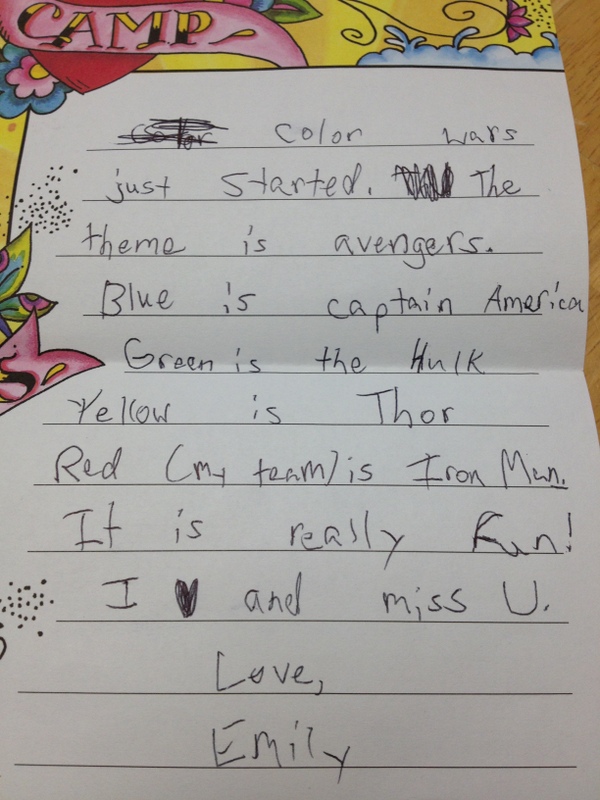 CAMP
color color wars
just started. The
theme is avengers.
Blue is captain America
Green is the Hulk
Yellow is Thor
Red (my team) is Iron Man.
It is really Fun!
I ♥ and miss U.
Love,
Emily